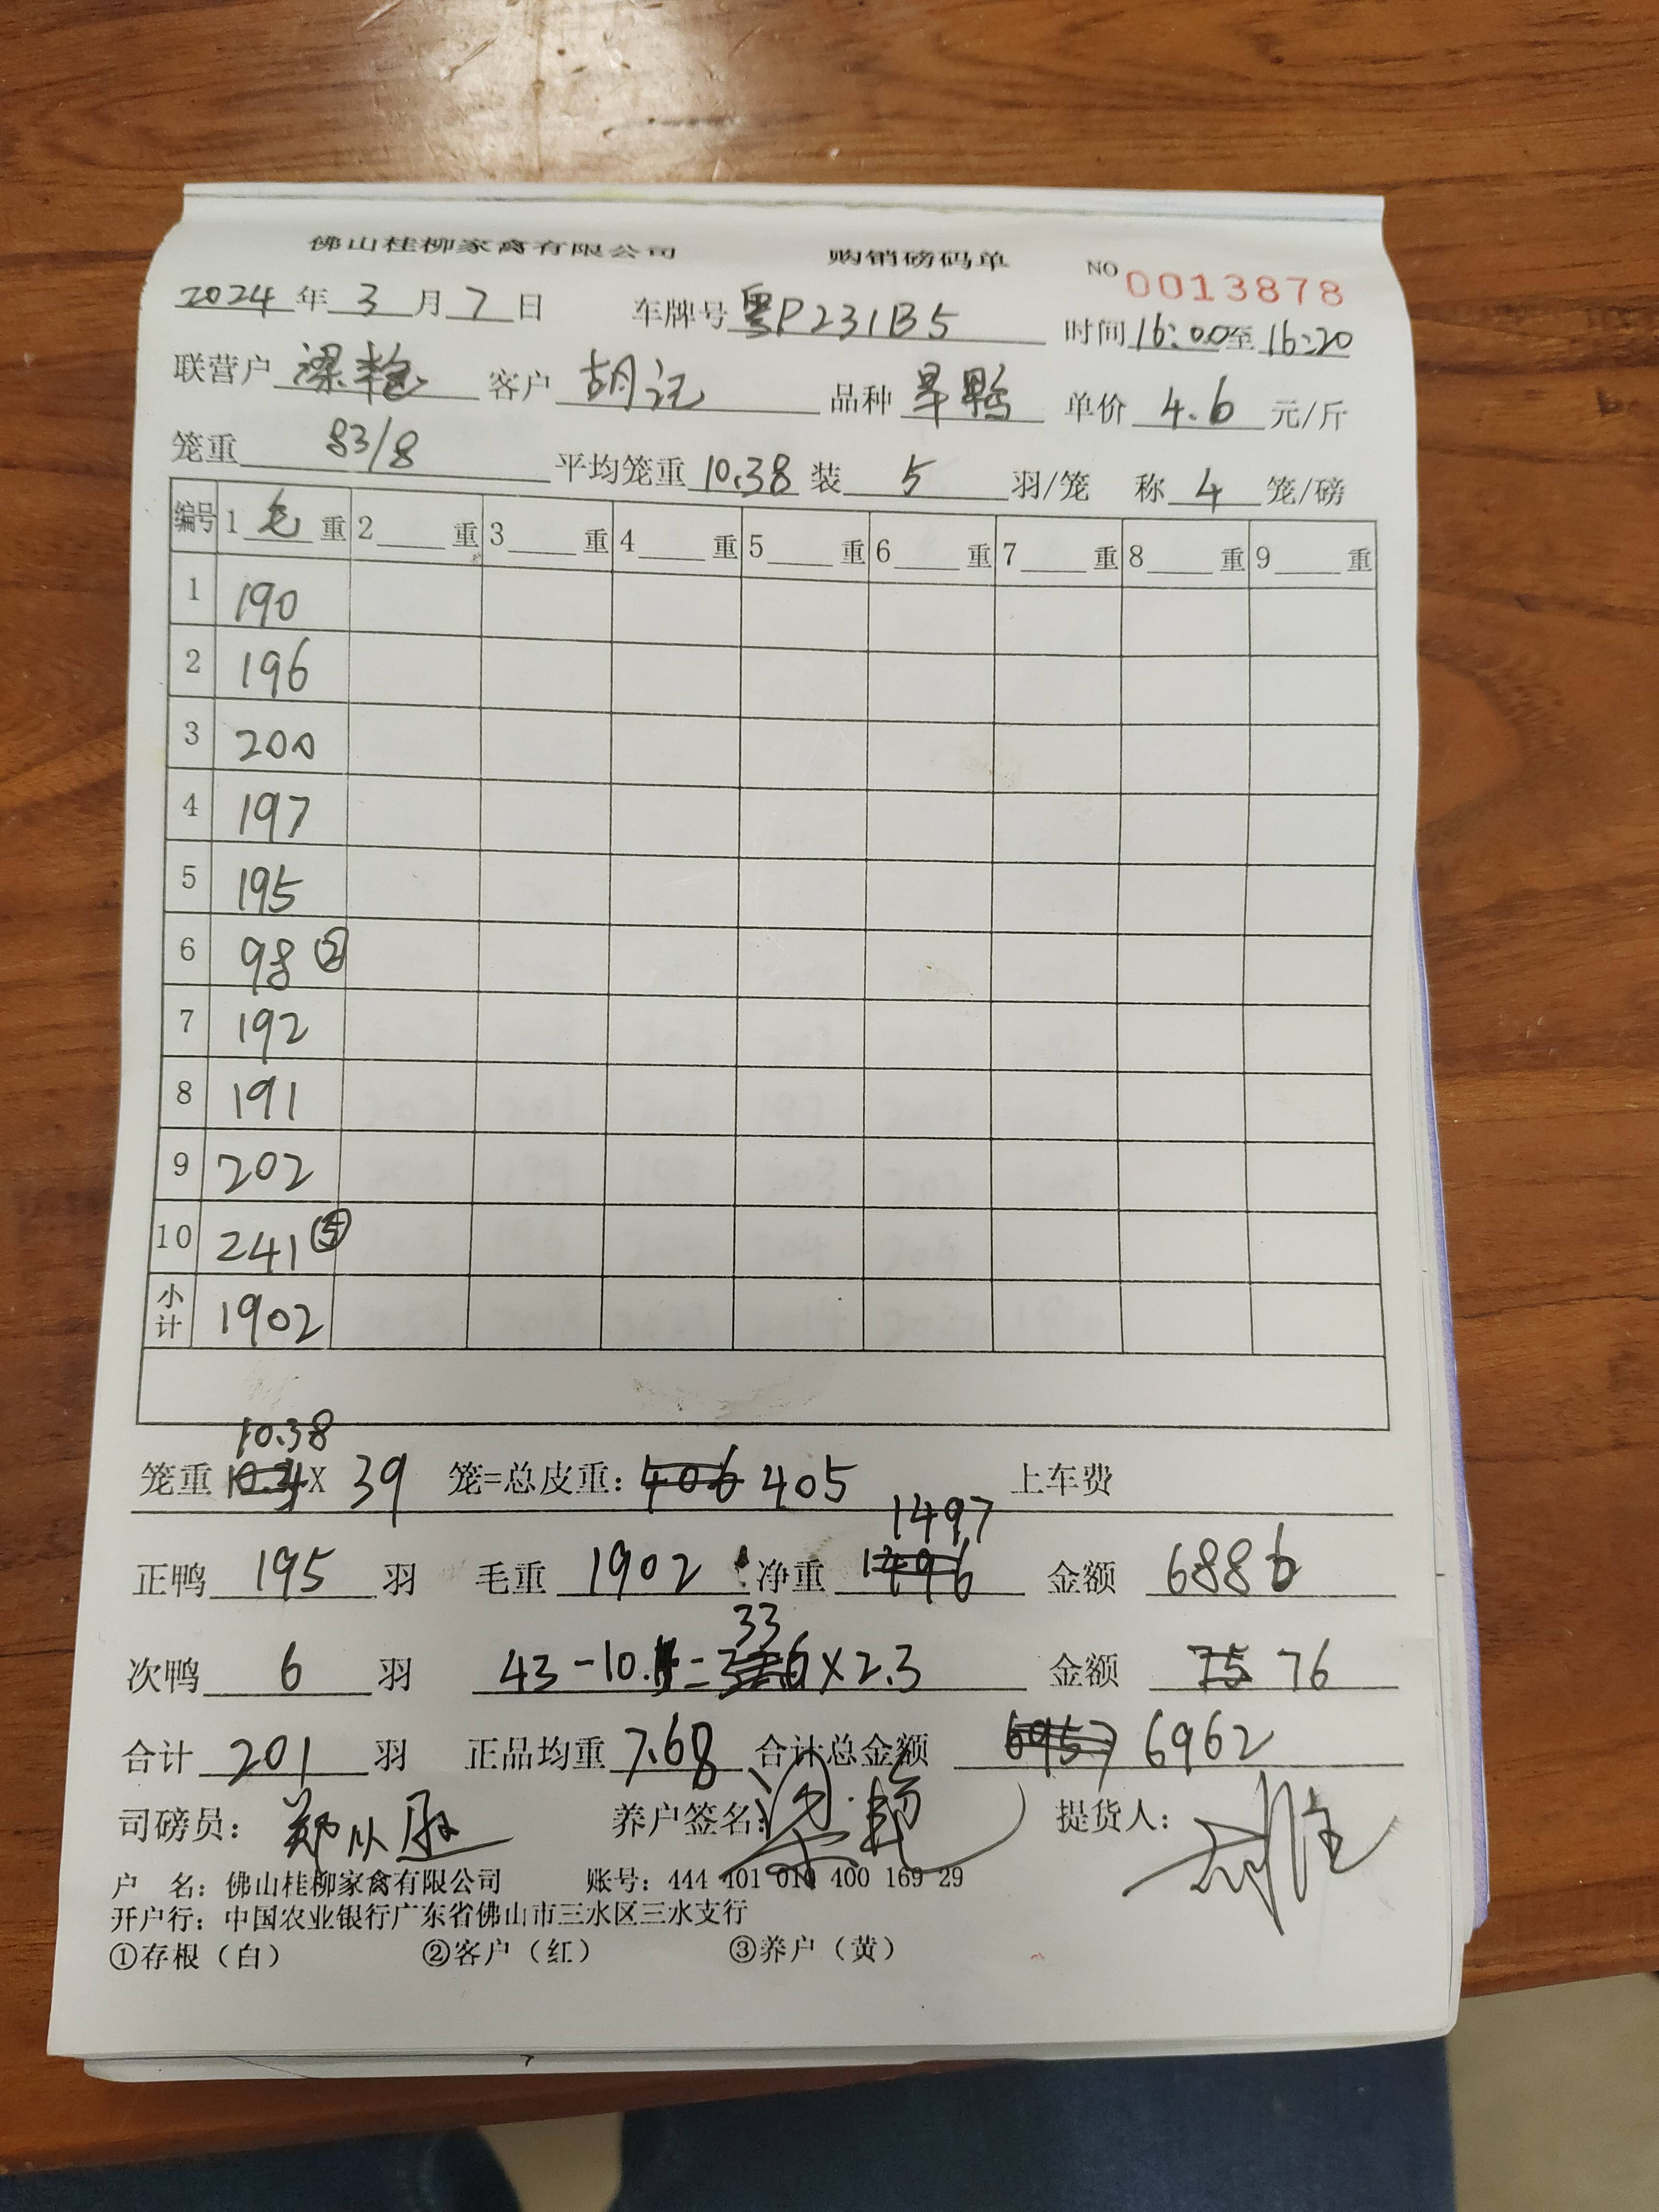 佛山桂柳家禽有限公司 购销磅码单 NO 0013878
2024 年 3 月 7 日 车牌号 粤P231B5 时间 16:00 至 16:20
联营户 梁艳 客户 胡记 品种 旱鸭 单价 4.6 元/斤
笼重 83/8 平均笼重 10.38 装 5 羽/笼 称 4 笼/磅
编号 1 毛 重 2 重 3 重 4 重 5 重 6 重 7 重 8 重 9 重
1 190
2 196
3 200
4 197
5 195
6 98 ②
7 192
8 191
9 202
10 241 ⑤
小计 1902
10.38
笼重 X 39 笼=总皮重: 406 405 上车费
1497
正鸭 195 羽 毛重 1902 净重 1496 金额 6886
33
次鸭 6 羽 43-10. = X2.3 金额 75 76
合计 201 羽 正品均重 7.68 合计总金额 6957 6962
司磅员: 养户签名: 梁艳 提货人:
户 名: 佛山桂柳家禽有限公司 账号: 444 401 010 400 169 29
开户行: 中国农业银行广东省佛山市三水区三水支行
①存根（白） ②客户（红） ③养户（黄）